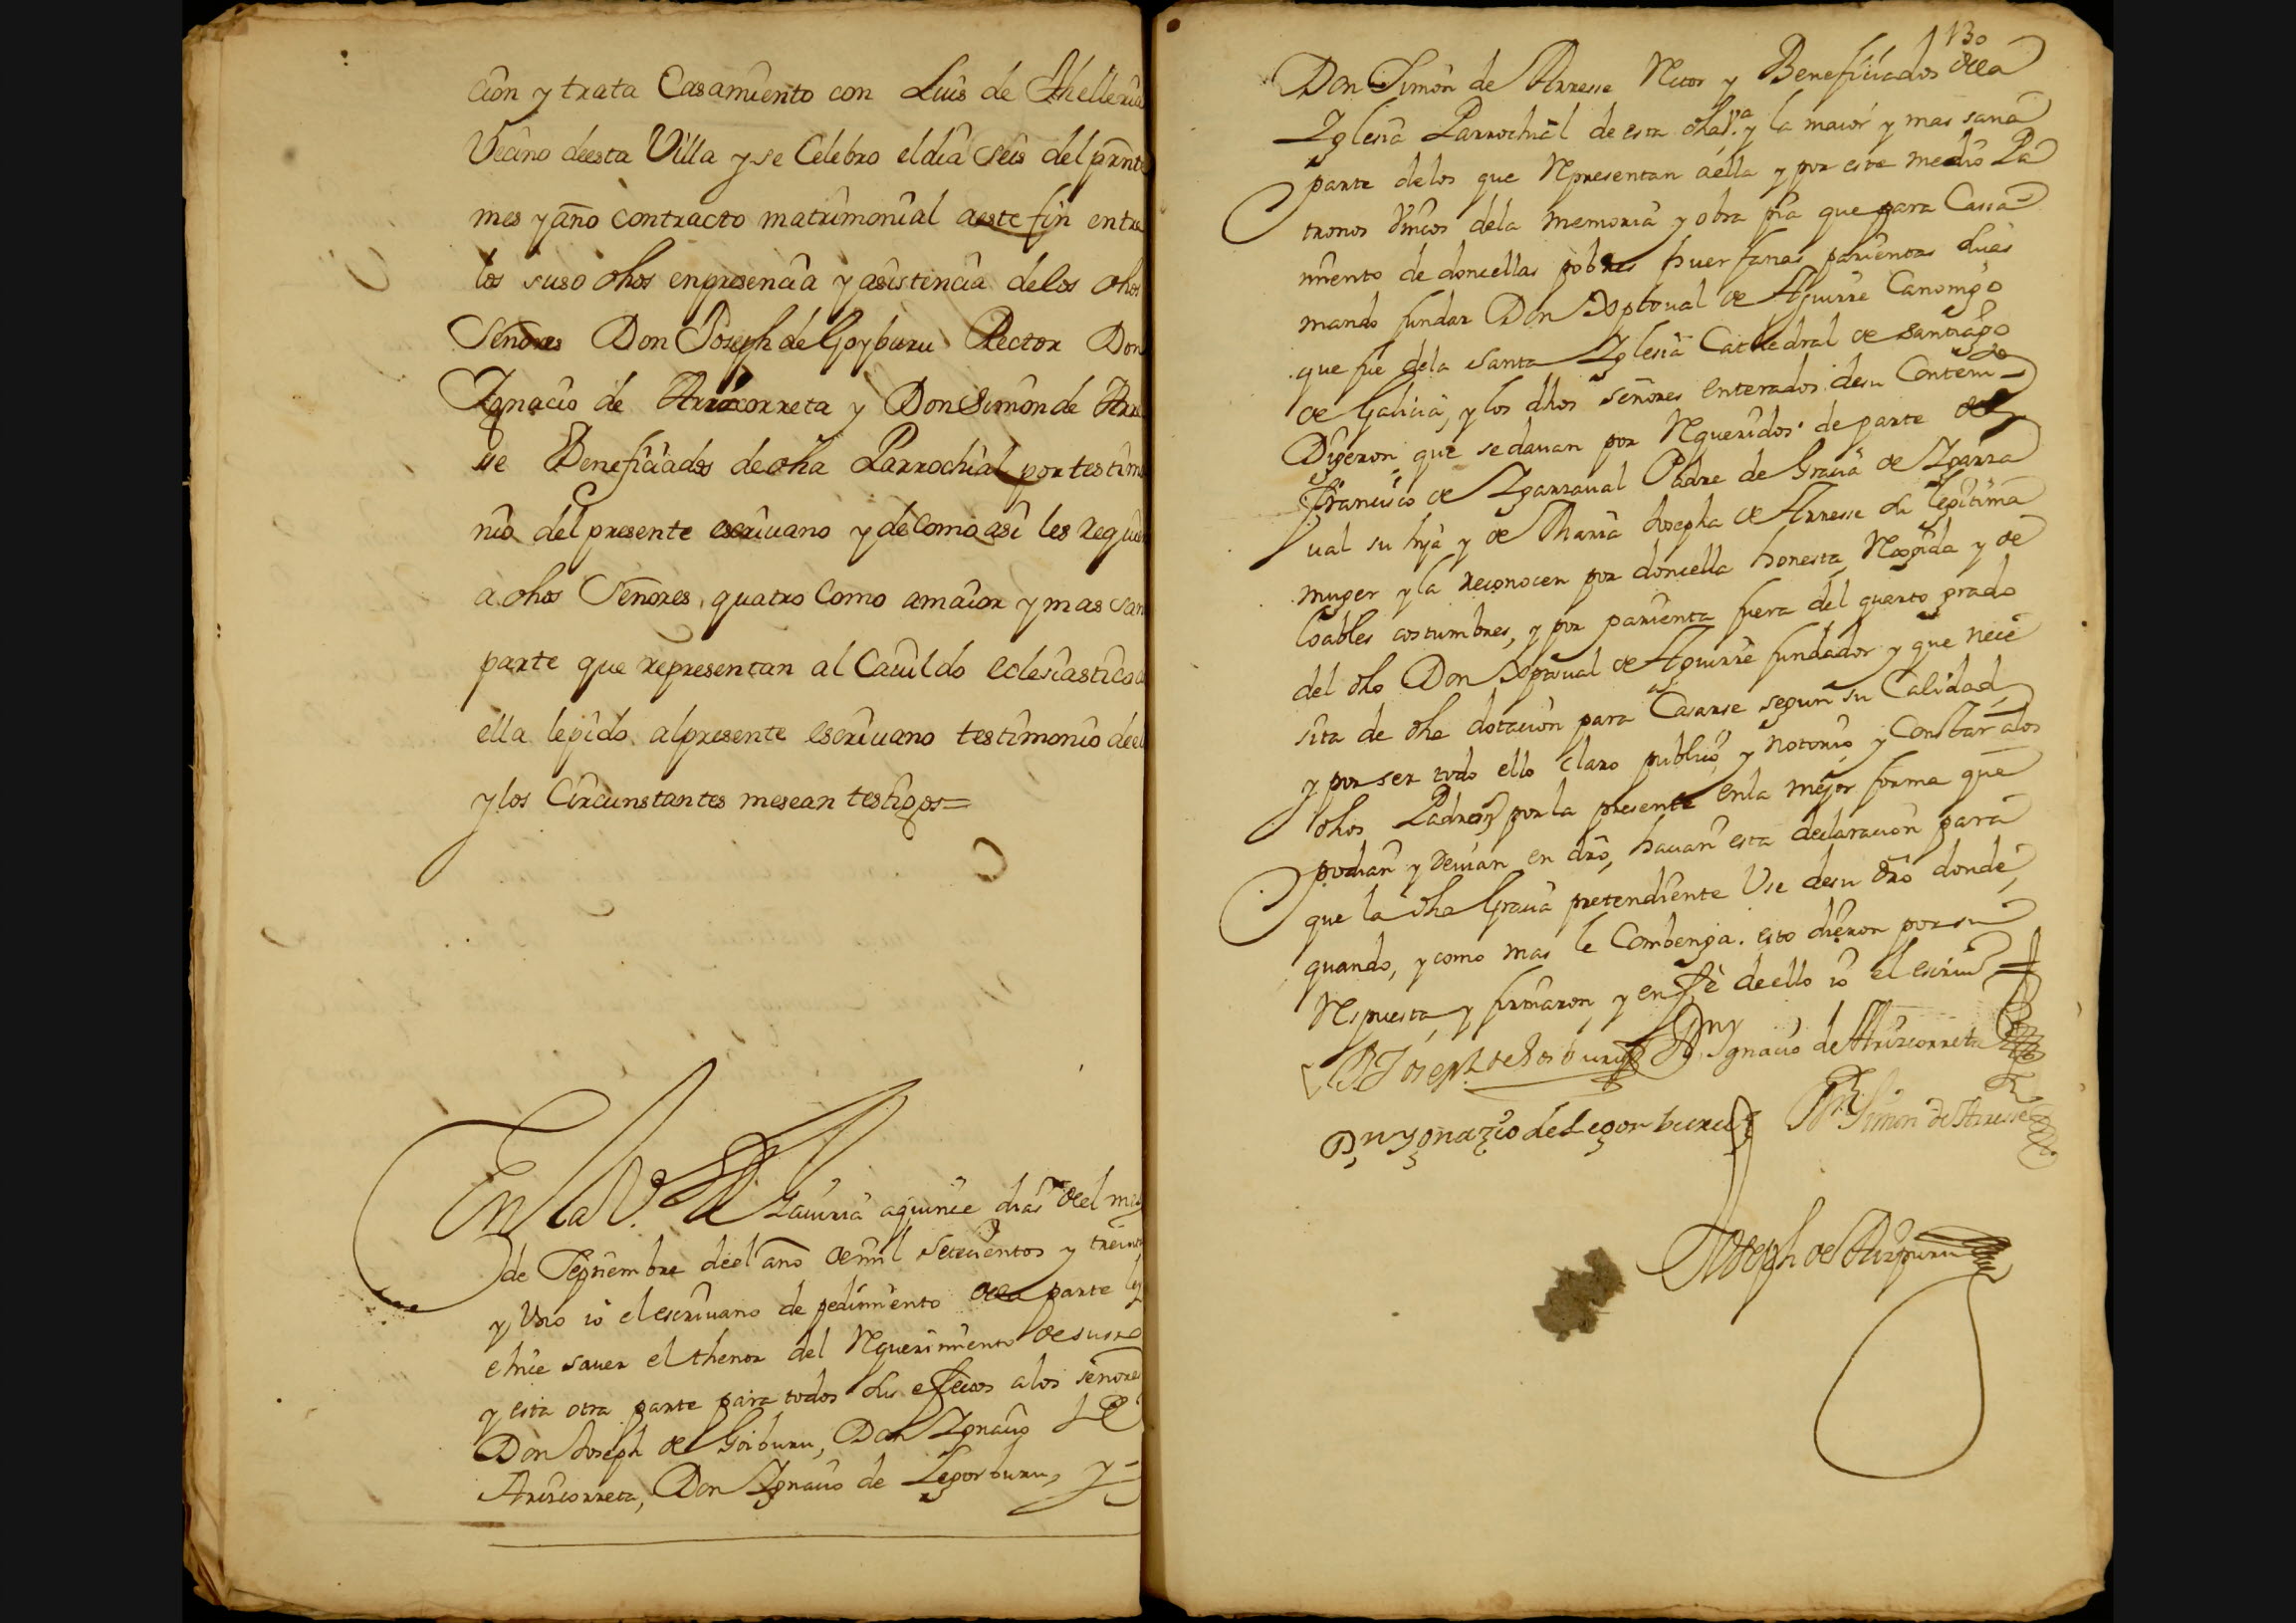 cion y trata Casamiento con Luis de
Vecino deesta Villa y se Celebro eldia seis del pr̃nte
mes y año contracto matrimonial aeste fin entre
los suso dhos enpresencia y asistencia delos dhos
Señores Don Joseph de Goyburu Rector Don
Ignacio de Ariscorreta y Don Simon de Arre
sse Beneficiados de dha Parrochial por testimo
nio del presente escriuano y decomo asi les requie
a dhos Señores quatro Como amaior y mas san
parte que representan al Cauildo eclesiastico
ella lepido alpresente escriuano testimonio deel
y los Circunstantes mesean testigos=
En la V.ª de aquince dias del mes
de Septiembre deel año demil setecientos y treinta
y Uno io el escriuano de pedimiento dela parte ley
e hice sauer el thenor del Requerimiento desusso
y esta otra parte para todos sus efectos alos señores
Don Joseph de Goiburu, Don Ignacio de
Ariscorreta, Don Ignacio de Legorburu, y
130
Don Simon de Arresse Retor y Beneficiados dela
Iglesia Parrochial de esta dha V.ª y la maior y mas sana
parte delos que Representan aella y por este medio Pa
tronos Vnicos dela memoria y obra pia que para Cassa
miento de doncellas pobres huerfanas parientas suias
mando fundar Don Xptoual de Aguirre Canonigo
que fue dela santa Iglesia Cathedral de santiago
de Galicia, y los dhos señores enterados desu Contenido
Digeron que se dauan por Requeridos de parte de
Francisco de Igarzaual Padre de Gracia de Igarza
ual su hija y de Maria Josepha de Arresse su legitima
muger y la reconocen por doncella honesta, Recogida y de
loables costumbres, y por parienta fuera del quarto grado
del dho Don Xptoual de Aguirre fundador y que nece
sita de dha dotacion para Casarse segun su Calidad,
y por ser todo ello claro publico y notorio, y Constar alos
dhos Padrones por la presente enla mejor forma que
podian y Deuian en dr̃o, hacian esta declaracion para
que la dha Gracia pretendiente Use desu dr̃o donde,
quando, y como mas le Combenga. esto dieron por su
Respuesta y firmaron, y en Fè deello io el escriuº=
D Joseph de Goiburu Dn Ignacio de Ariscorreta
Dn Ygnazio de Legorburu Dn Simon de Arresse
Joseph de Aizpuru